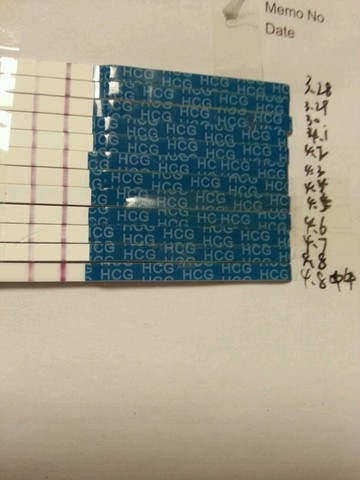 Memo No
Date
HCG HCG HCG 3.28
HCG HCG HCG HCG 3.29
HCG HCG HCG 30.
HCG HCG HCG HCG 4.1
HCG HCG HCG 4.2
HCG HCG HCG HCG 4.3
HCG HCG HCG HCG 4.4
HCG HCG HCG 4.5
HCG HCG HCG HCG 4.6
HCG HCG HCG HCG 4.7
HCG HCG HCG HCG 4.8
HCG HCG HCG HCG 4.8 中午